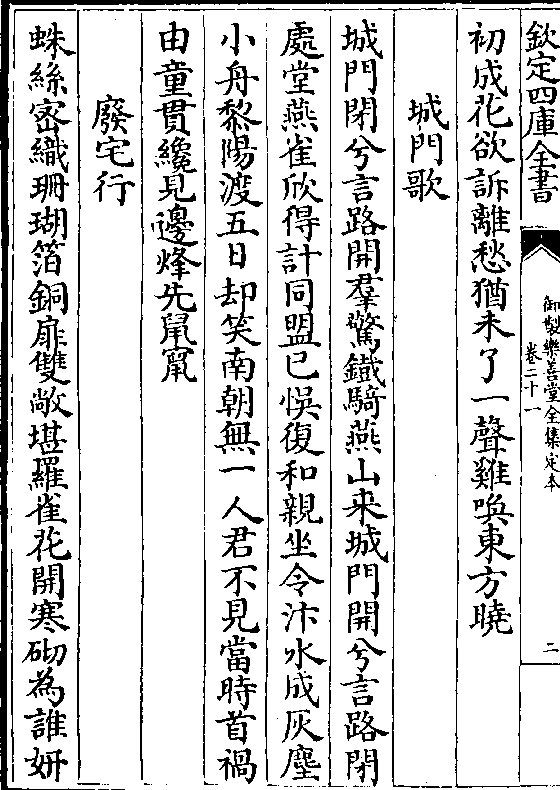 欽定四庫全書
御製樂善堂全集定本
卷二十一
二
初成花欲訴離愁猶未了一聲雞喚東方曉
城門歌
城門閉兮言路開羣驚鐵騎燕山来城門開兮言路閉
處堂燕雀欣得計同盟已悞復和親坐令汴水成灰塵
小舟黎陽渡五日却笑南朝無一人君不見當時首禍
由童貫纔見邊烽先鼠竄
廢宅行
蛛絲密織珊瑚箔銅扉雙敞堪羅雀花開寒砌為誰妍